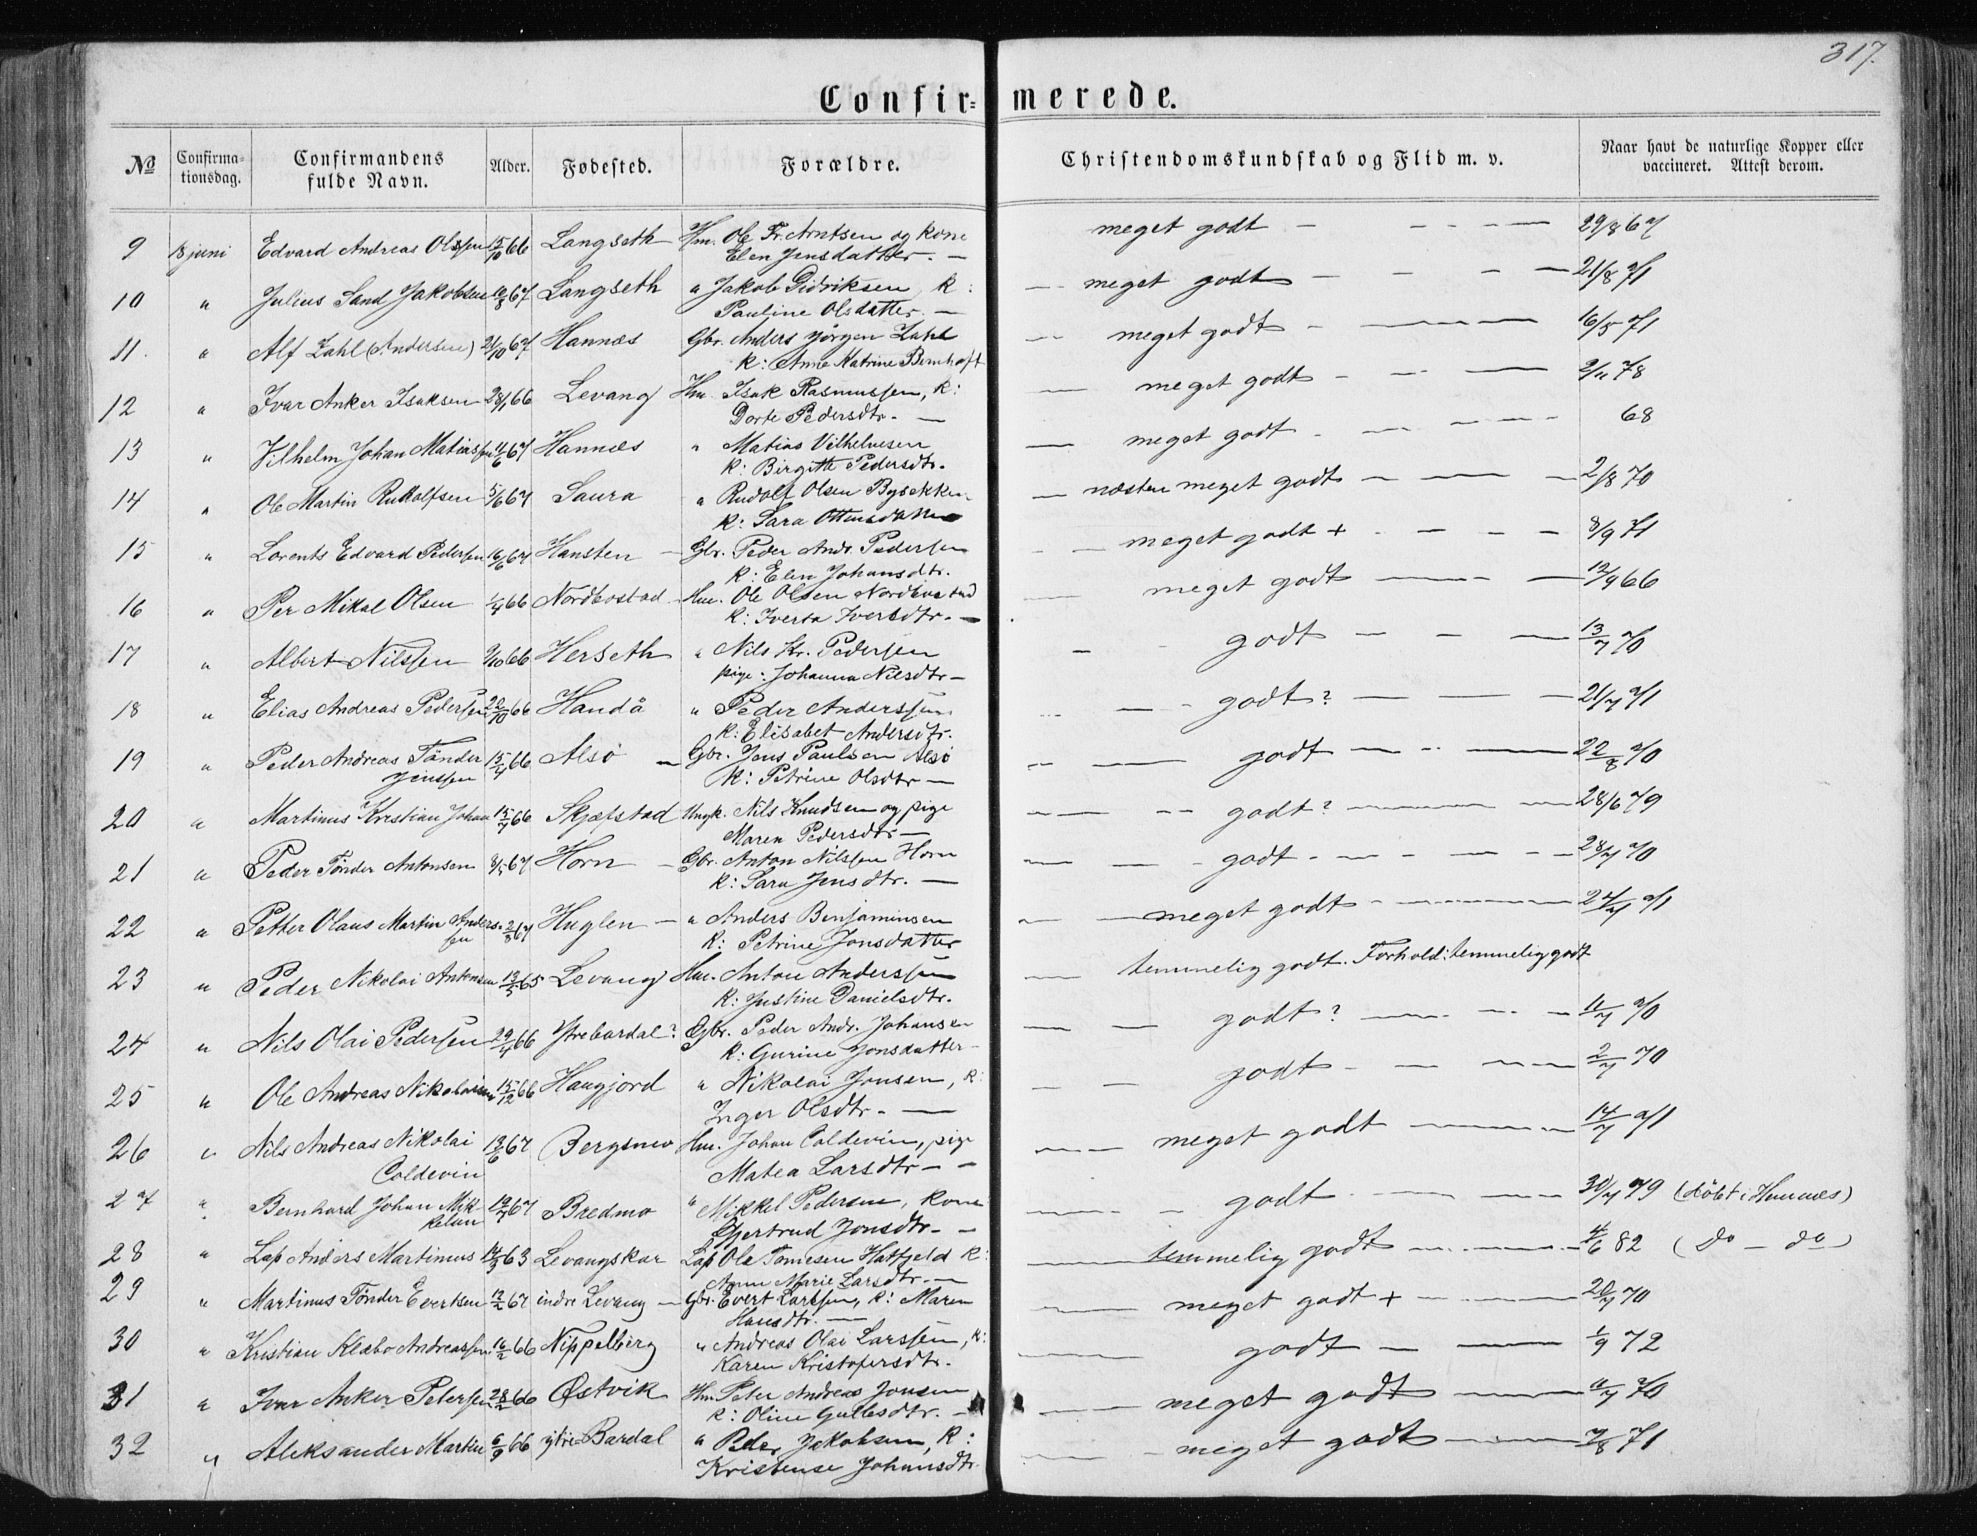 317.
Confir= merede.
№ Confirma-tionsdag. Confirmandens fulde Navn. Alder. Fødested. Forældre. Christendomskundskab og Flid m. v. Naar havt de naturlige Kopper eller vaccineret. Attest derom.
9 18 juni Edvard Andreas Olssen 15/10 66 Langseth Hm. Ole Fr. Arntsen og kone meget godt 29/8 67
Elen Jensdatter.
10 " Julius Sand Jakobsen 67 Langseth " Jakob Didriksen, k: meget godt 21/8 71
Pauline Olsdatter
11. " Alf Zahl (Andersen) 21/10 67 Hannæs Gbr. Anders Jörgen Zahl meget godt 16/5 71
k: Anne Katrine Bernhoft
12 " Ivar Anker Isaksen 66 Levang Hm. Isak Rasmussen, k: meget godt 2/11 78
Dorte Pedersdtr.
13 " Vilhelm Johan Matiassen 67 Hannæs " Matias Vilhelmsen meget godt 68
k: Birgitte Pedersdtr.
14 " Ole Martin Rudolfsen 5/6 67 Saura " Rudolf Olsen næsten meget godt 2/8 70
k: Sara Ottinsdatter
15 " Lorents Edvard Pedersen 16/6 67 Hansten Gbr. Peder Andr. Pedersen meget godt + 8/9 71
k: Elen Johansdtr.
16 " Per Mikal Olsen 1/4 66 Nordbostad Hm. Ole Olsen Nordbostad meget godt 12/9 66
k: Iverta Iversdtr.
17 " Albert Nilssen 66 Herseth " Nils Kr. Pedersen godt 13/7 70
pige: Johanna Nilsdtr
18 " Elias Andreas Pedersen 66 Handå " Peder Anderssen godt? 21/7 71
k: Elisabet Andersdtr.
19 " Peder Andreas Tönder 15/4 66 Alsö Gbr. Jens Paulsen Alsö godt 22/8 70
Jenssen k: Petrine Olsdtr
20 " Martinus Kristian Johan 15/7 66 Skjæfstad Ungk. Nils Knudsen og pige godt? 28/6 79
Maren Pedersdtr
21 " Peder Tönder Antonsen 8/5 67 Horn Gbr. Anton Nilssen Horn godt 28/7 70
k: Sara Jensdtr.
22 " Petter Olaus Martin Anders- 2/8 67 Huglen " Anders Benjaminsen meget godt 24/7 71
sen k: Petrine Jonsdatter
23 " Peder Nikolai Antonsen 65 Levang Hm. Anton Anderssen temmelig godt. Forhold: temmelig godt
k: Justine Danielsdtr.
24 " Nils Olai Pedersen 29/4 66 Ytrebardal? Gbr. Peder Andr. Johansen godt? 11/7 70
k: Gurine Jonsdatter
25 " Ole Andreas Nikolaisen 15/12 66 Haugjord " Nikolai Jonsen, k: godt 2/7 70
Inger Olsdtr.
26 " Nils Andreas Nikolai 13/6 67 Bergsmo Hm. Johan Coldevin, pige meget godt 14/7 71
Coldevin Matea Larsdtr
27 " Bernhard Johan Mik- 67 Bredmo " Mikkel Pedersen, kone godt 30/7 79 (döbt i Hemnæs)
kelsen Gjertrud Jonsdtr
28 " Lap Anders Martinus 63 Levangskar Lap Ole Tomesen Hatfjeld k: temmelig godt 4/6 82 (do - do)
Anne Marie Larsdtr.
29 " Martinus Tönder Evertsen 12/2 67 indre Levang Gbr. Evert Larssen, k: Maren meget godt + 20/7 70
Hansdtr.
30 " Kristian Klæbo Andreassen 16/2 66 Nippelberg " Andreas Olai Larssen, k: godt 1/9 72
Karen Kristofersdtr.
31 " Ivar Anker Petersen 28/2 66 Østvik Hm. Peter Andreas Jonsen meget godt 11/7 70
k: Oline Gullesdtr.
32 " Aleksander Martin 6/9 66 ytre Bardal " Peder Jakobsen, k: meget godt 7/8 71
Kristense Johansdtr